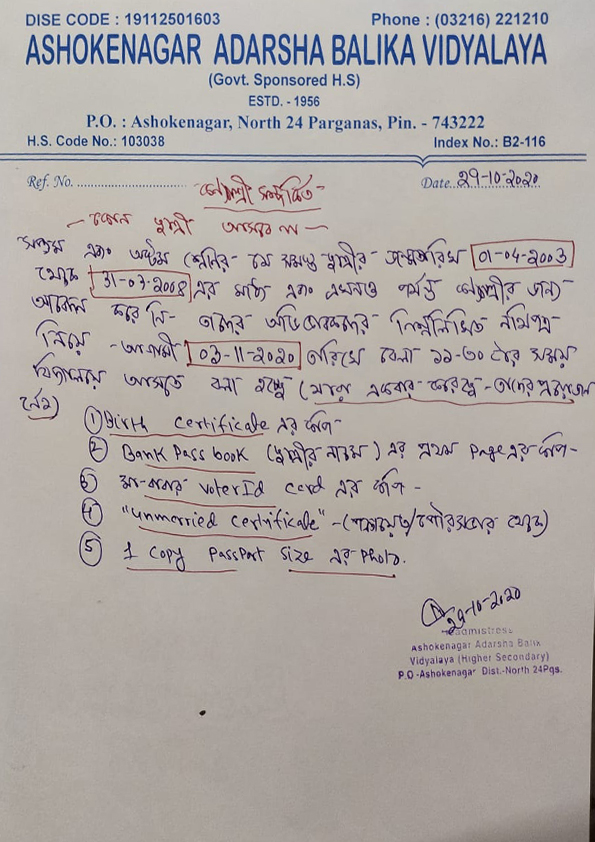 DISE CODE : 19112501603 Phone : (03216) 221210
ASHOKENAGAR ADARSHA BALIKA VIDYALAYA
(Govt. Sponsored H.S)
ESTD. - 1956
P.O. : Ashokenagar, North 24 Parganas, Pin. - 743222
H.S. Code No.: 103038 Index No.: B2-116
Ref. No. Date 29-10-2020
কন্যাশ্রী সম্পর্কিত
- কোন ছাত্রী আসবে না -
এবং অষ্টম শ্রেনির যে সমস্ত ছাত্রীর জন্মতারিখ 01-04-2003
থেকে 31-03-2008 এর মধ্যে এবং এখনও পর্যন্ত কন্যাশ্রীর জন্য
আবেদন করে নি- তাদের অভিভাবকদের নিম্নলিখিত নথিপত্র
নিয়ে আগামী 03-11-2020 তারিখে বেলা ১১-৩০ টার সময়
বিদ্যালয়ে আসতে বলা হচ্ছে (যারা একবার করেছে - তাদের প্রয়োজন
নেই)
① Birth certificate এর কপি-
② Bank Pass book (ছাত্রীর নামে) এর প্রথম Page এর কপি-
③ মা-বাবার Voter Id card এর কপি-
④ "Unmerried certificate" - (পঞ্চায়েত/পৌরসভার থেকে)
⑤ 1 Copy Passport Size এর Photo.
29-10-2020
Ashokenagar Adarsha Balik
Vidyalaya (Higher Secondary)
P.O -Ashokenagar Dist.-North 24Pgs.